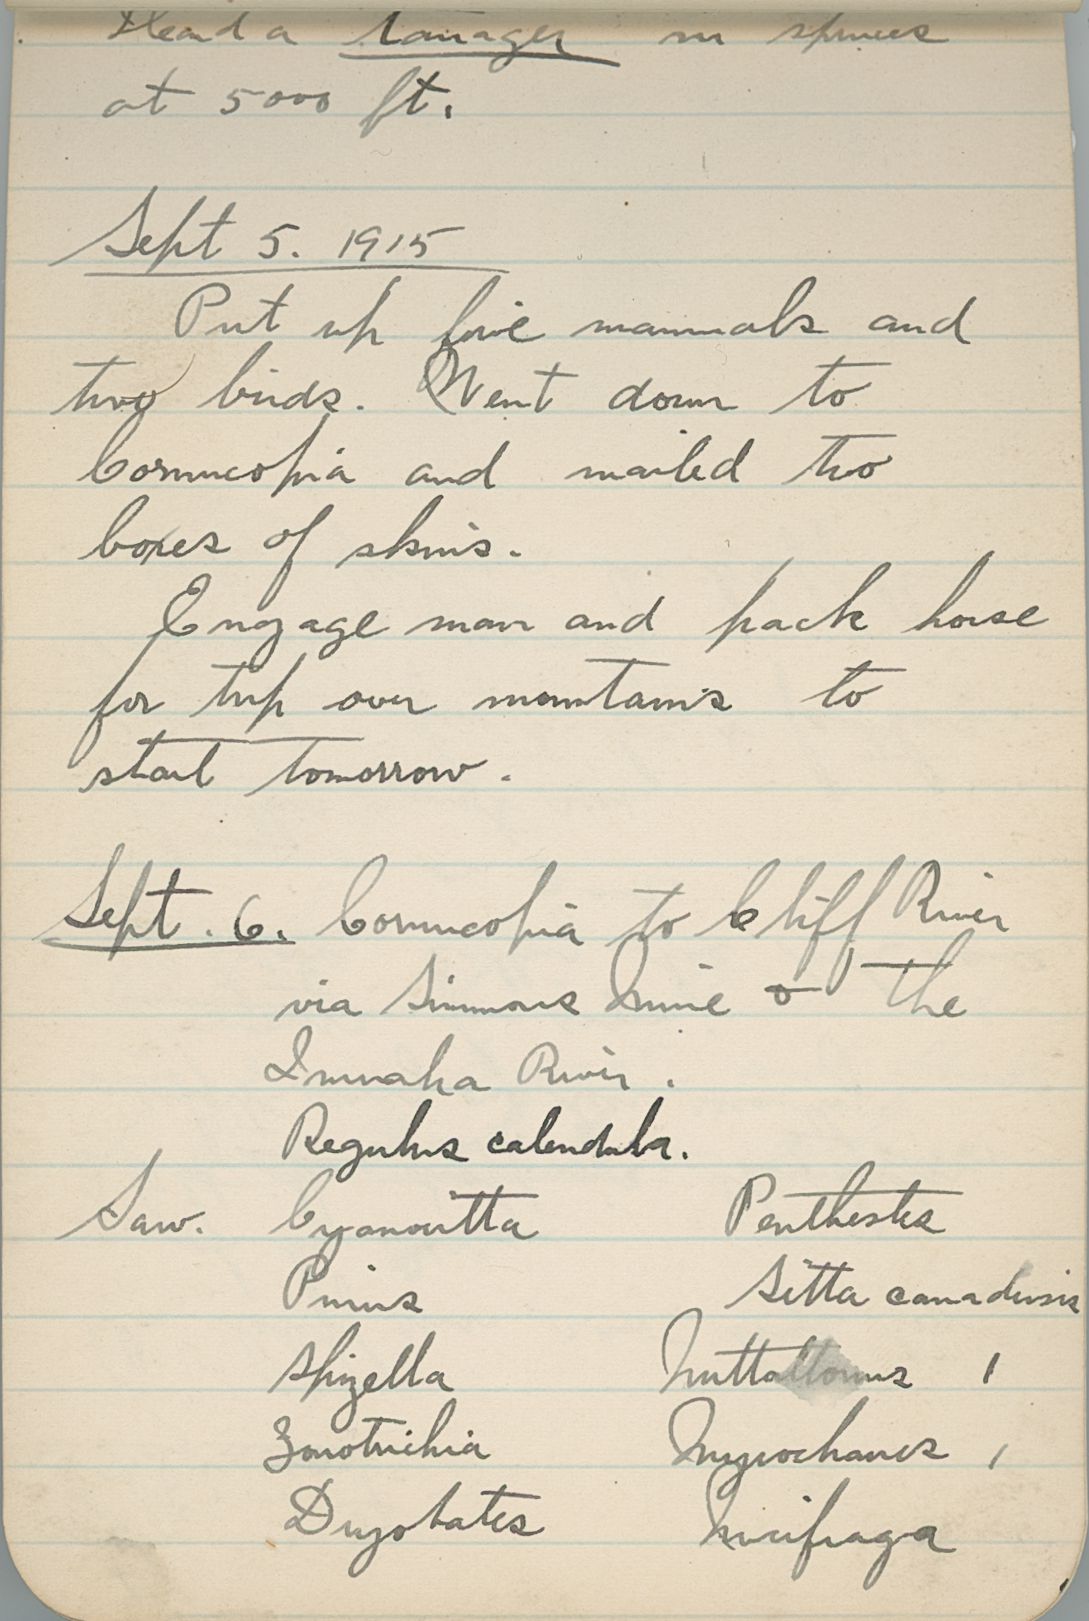 Heard a tanager in spruces
at 5000 ft.
Sept 5. 1915
Put up five mammals and
two birds. Went down to
Cornucopia and mailed two
boxes of skins.
Engage man and pack horse
for trip over mountains to
start tomorrow.
Sept. 6. Cornucopia to Cliff River
via Simmons Mine & the
Imnaha River.
Regulus calendula.
Saw. Cyanocitta Penthestes
Pinus Sitta canadensis
Spizella Nuttallornis 1
Zonotrichia Myiochanes 1
Dryobates Nucifraga